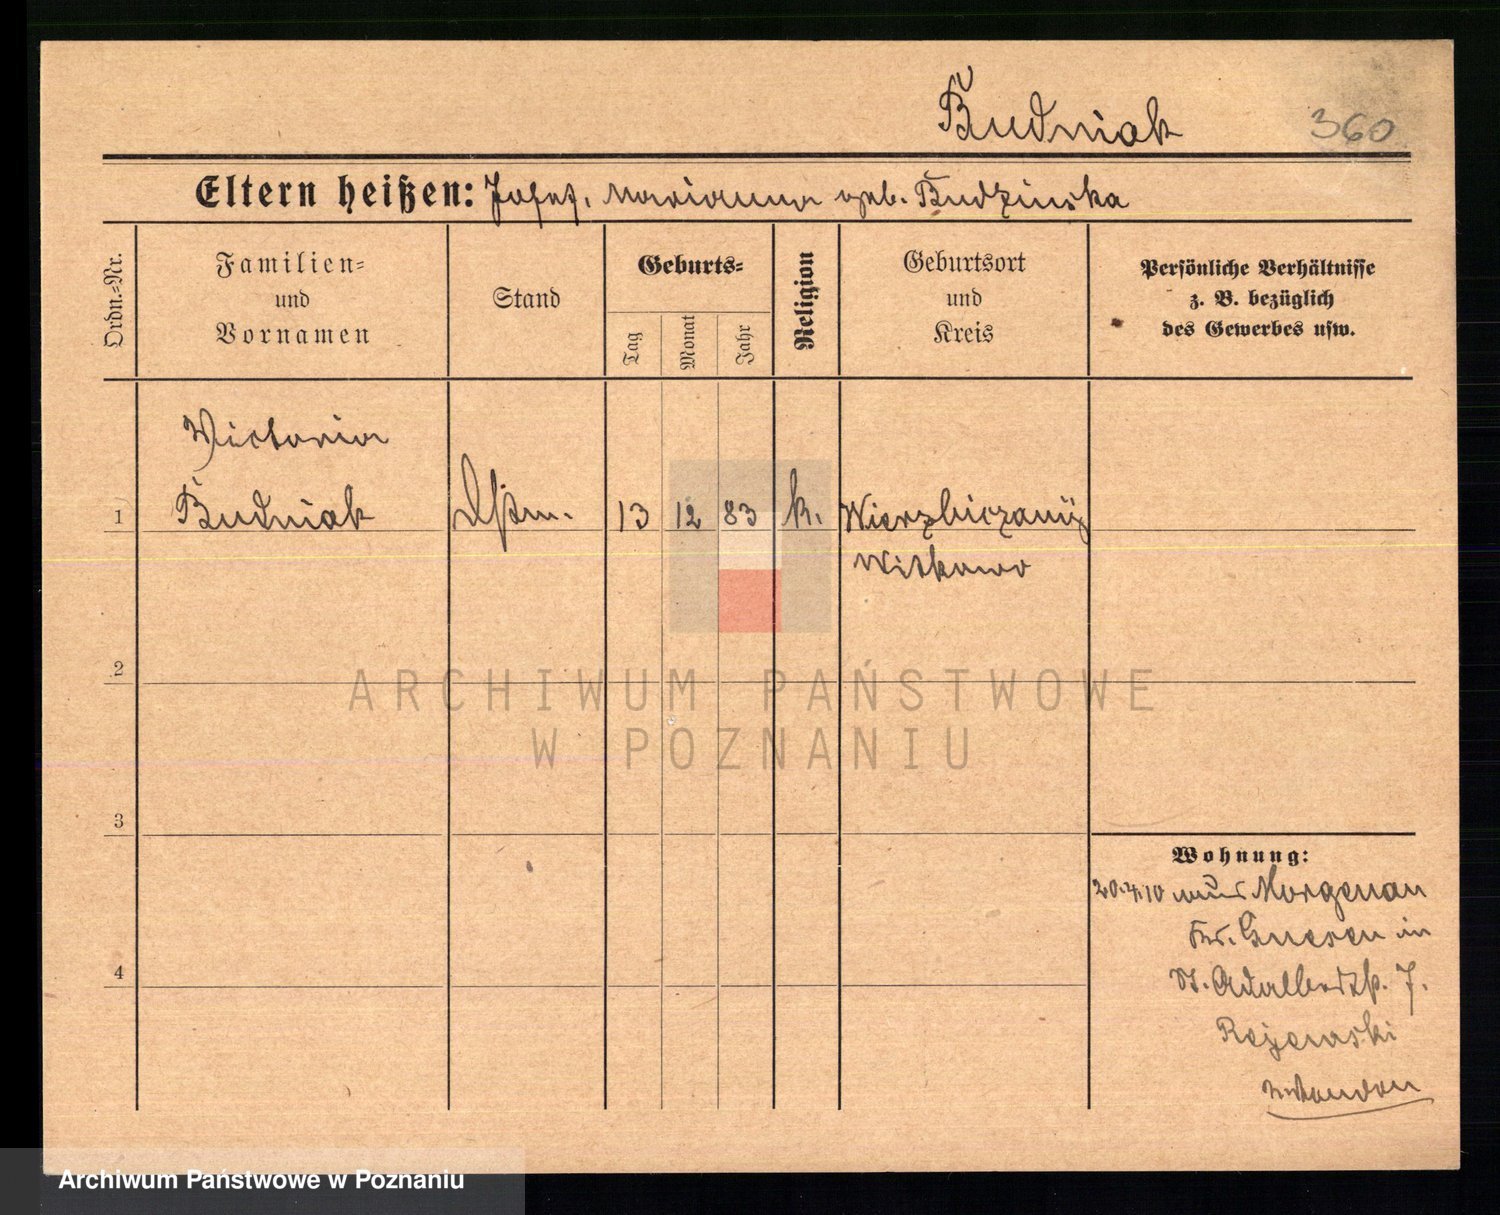 Budniak
360
Eltern heißen: Josef, Marianna geb. Budzinska
Ordn.-Nr.
Familien-
und
Vornamen
Stand
Geburts-
Tag
Monat
Jahr
Religion
Geburtsort
und
Kreis
Persönliche Verhältnisse
z. B. bezüglich
des Gewerbes usw.
Victoria
1 Budniak 13 12 83 k. Wierzbiczany
Witkowo
2
3
4
Wohnung:
20.4.10 Morgenau
Kr. Gnesen in
St. Adalbertstr. 7.
Rejewski
ARCHIWUM PAŃSTWOWE
W POZNANIU
Archiwum Państwowe w Poznaniu